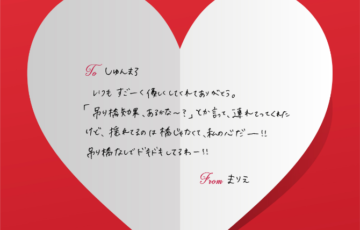 To しゅんまろ
いつも すごーく優しくしてくれてありがとう。
「吊り橋効果、あるかな〜?」とか言って、連れてってくれた
けど、揺れてるのは橋じゃなくて、私の心だー!!
吊り橋なしでドキドキしてるわー!!
From まりえ